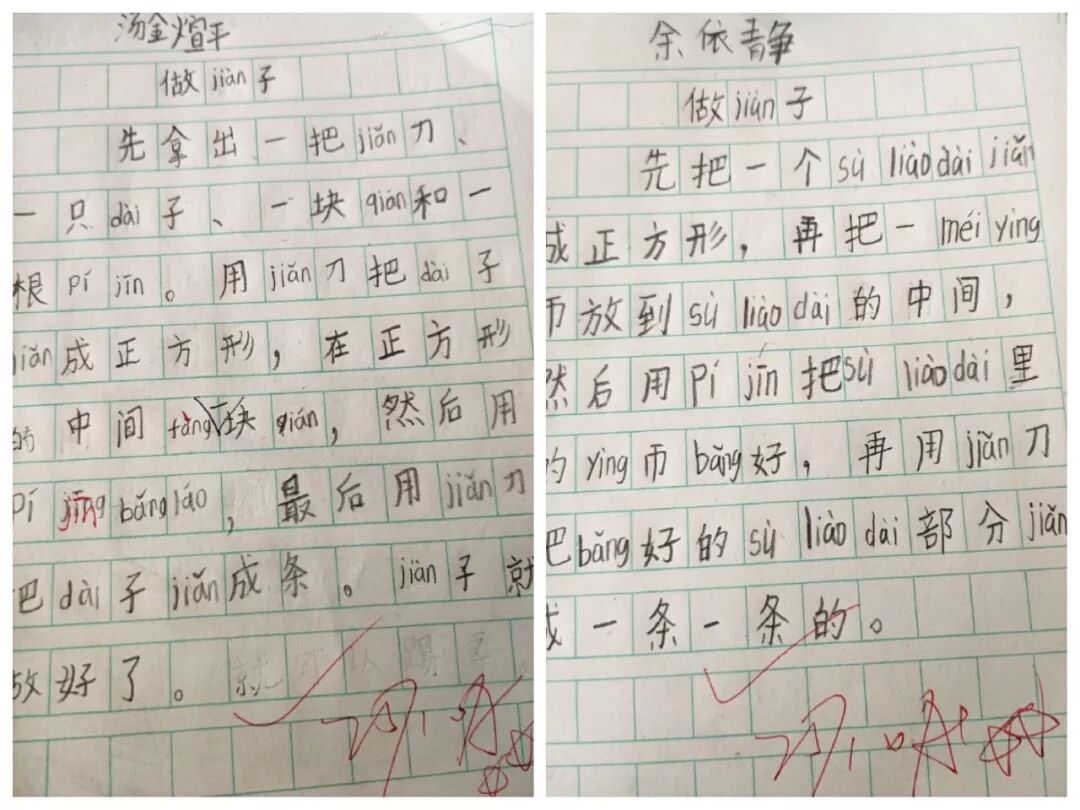 汤金煊平
做jiàn子
先拿出一把jiǎn刀、
一只dài子、一块qián和一
根pí jīn。用jiǎn刀把dài子
jiǎn成正方形，在正方形
的中间fàng块qián，然后用
pí jīn bǎng láo，最后用jiǎn刀
把dài子jiǎn成条。jiàn子就
做好了。
余依青争
做jiàn子
先把一个sù liào dài jiǎn
成正方形，再把一méi yìng
币放到sù liào dài的中间，
然后用pí jīn把sù liào dài里
的yìng币bǎng好，再用jiǎn刀
把bǎng好的sù liào dài部分jiǎn
成一条一条的。